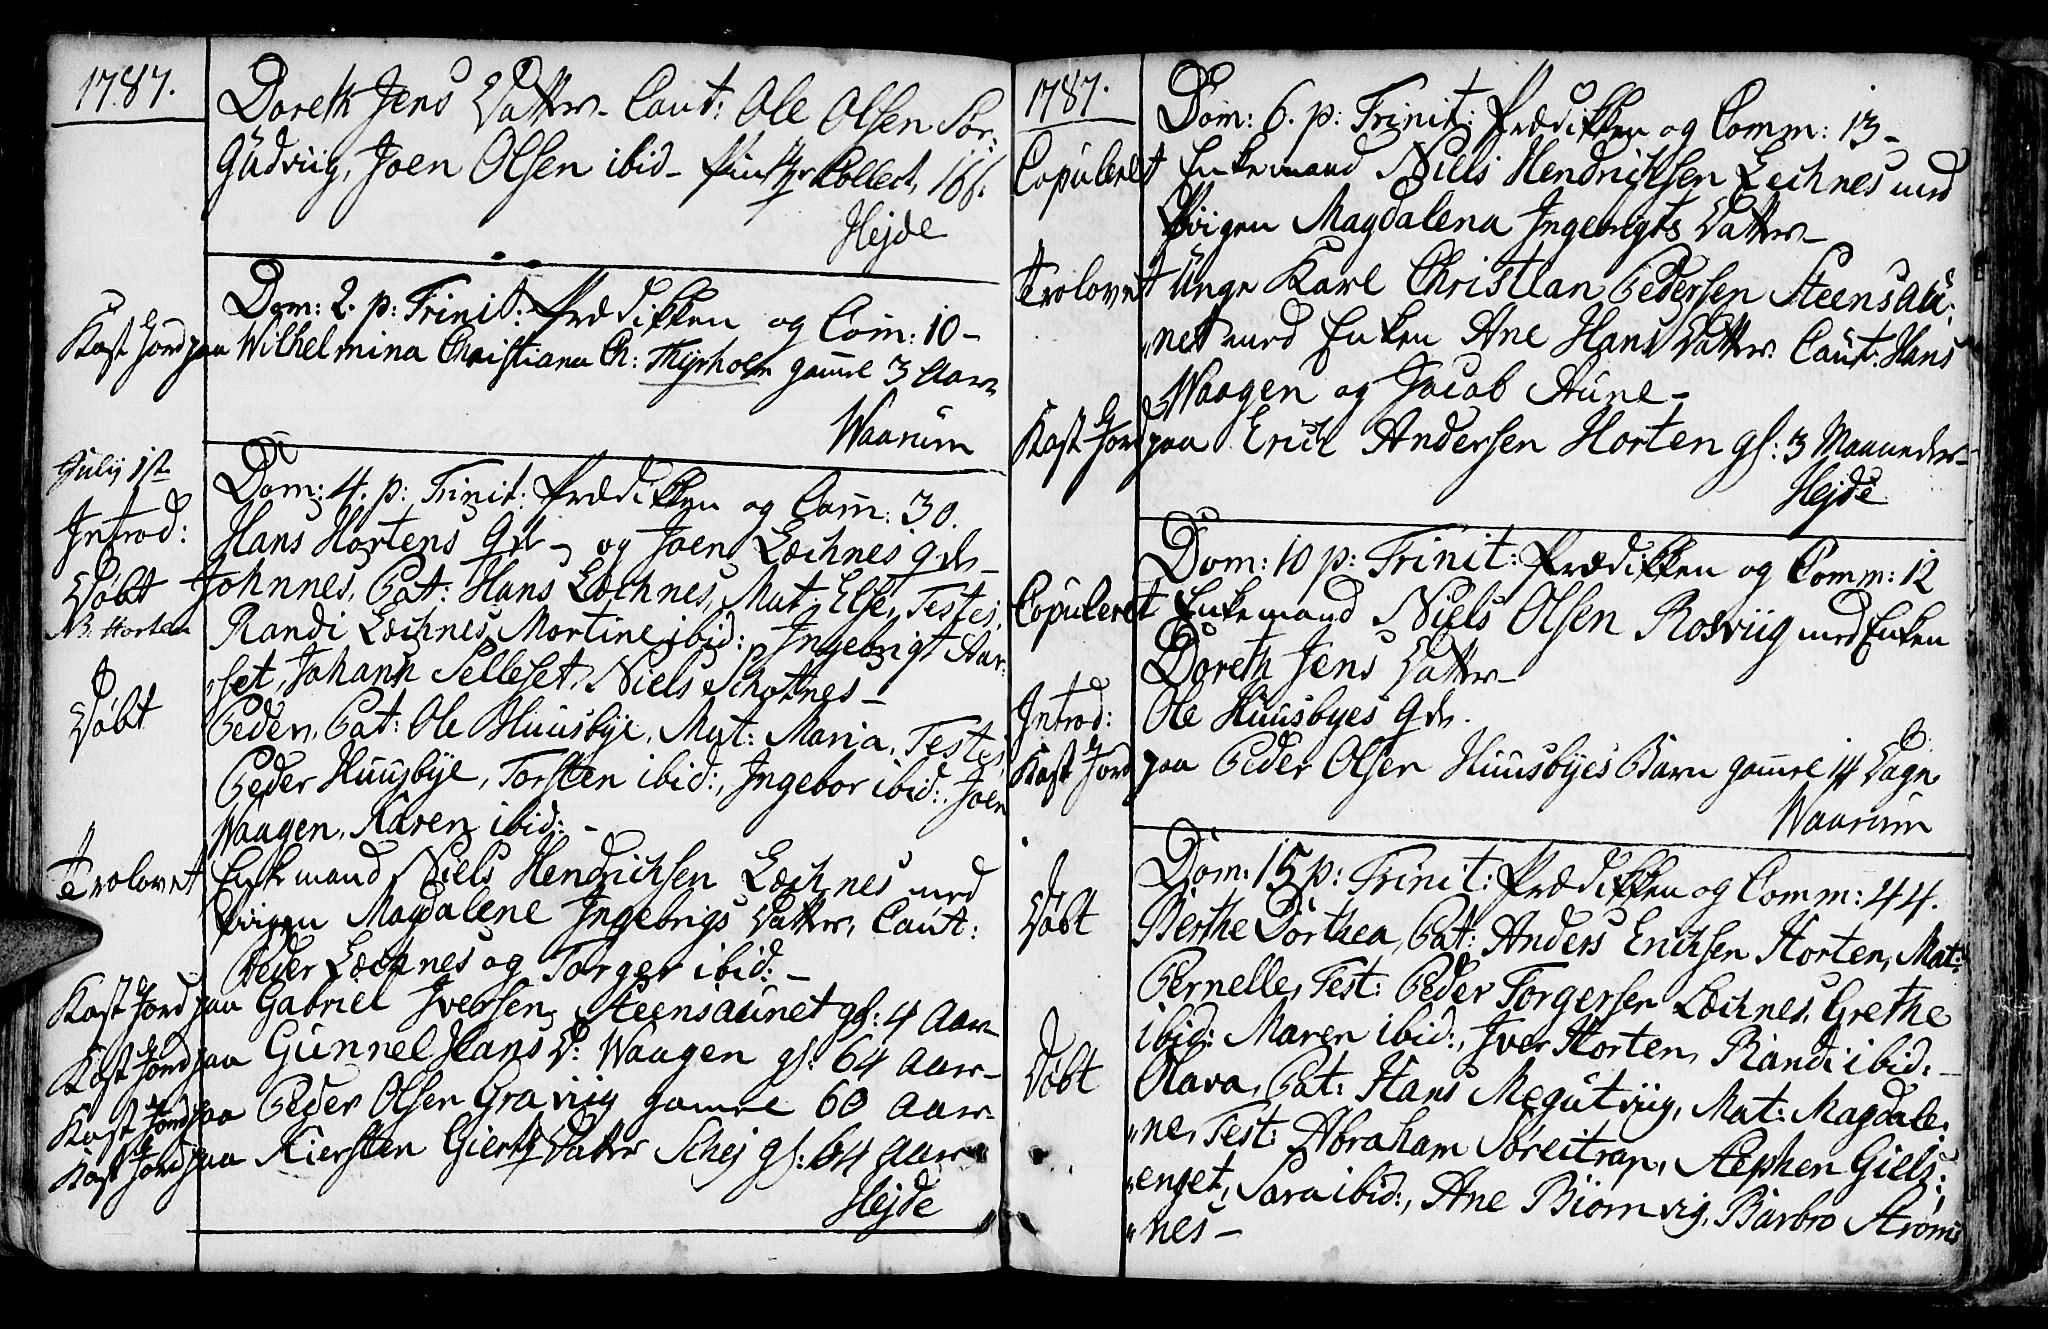 1787.
Doreth Jens Datter. Caut: Ole Olsen Sør,
Gudviig, Joen Olsen ibid- Collect, 166.
Hejde
Dom: 2. p: Trinit: Prædikken og Com: 10-
Kast Jord paa Wilhelmina Christiana Ch: Thyrholm gamle 3 Aar
Waarum
July 1st Dom: 4. p: Trinit: Prædikken og Com: 30.
Introd: Hans Hortens Qde- og Joen Lechnes Qde-
Døbt Johnnes, Pat: Hans Lechnes, Mat Else, Testes,
NB. Horten Randi Lechnes, Mortine ibid: Ingebrigt Aar:
"set, Johann Selleset, Niels Schottnes-
Døbt Peder, Pat: Ole Huusbye, Mat: Maria, Testes
Peder Huusbye, Torsten ibid:, Ingebor ibid:, Joen
Waagen, Karen ibid: -
Trolovet Enkemand Niels Hendrichsen Lechnes med
Pigen Magdalene Ingebrigs Datter, Caut:
Peder Lechnes og Torger ibid: -
Kast Jord paa Gabriel Iversen, Steensaunet gl: 4 Aar-
Kast Jord paa Gunnel Hans D: Waagen gl: 64 Aar-
Kast Jord paa Peder Olsen Graviig gamle 60 Aar-
Kast Jord paa Kiersten Giertz Datter Schej gl: 64 Aar
Hejde
1787.
Dom: 6. p: Trinit: Prædikken og Comm: 13-
Copuleret Enkemand Niels Hendrichsen Lechnes med
Pigen Magdalena Ingebrigts Datter-
Trolovet Unge Karl Christian Pedersen Steensau,
"net med Enken Ane Hans Datter. Caut: Hans
Waagen og Jacob Aune-
Kast Jord paa Erich Andersen Horten gl: 3 Maaneder-
Hejde
Dom: 10 p: Trinit: Prædikken og Comm: 12
Copuleret Enkemand Niels Olsen Rosviig med Enken
Doreth Jens Datter-
Introd: Ole Huusbyes Qde.
Kast Jord paa Peder Olsen Huusbyes Barn gamle 14 Dage
Waarum
Dom: 15 p: Trinit: Prædikken og Comm: 44.
Døbt Berthe Dorthea, Pat: Anders Erichsen Horten, Mat:
Pernelle, Test: Peder Torgersen Lechnes, Grethe
ibid: Maren ibid:, Iver Horten, Randi ibid: -
Døbt Olava, Pat: Hans Megutviig, Mat: Magdale,
"ne, Test: Abraham Søreitrap, Stephen Giels:
"enget, Sara ibid:, Ane Biornvig, Barbro Strøms
"nes-